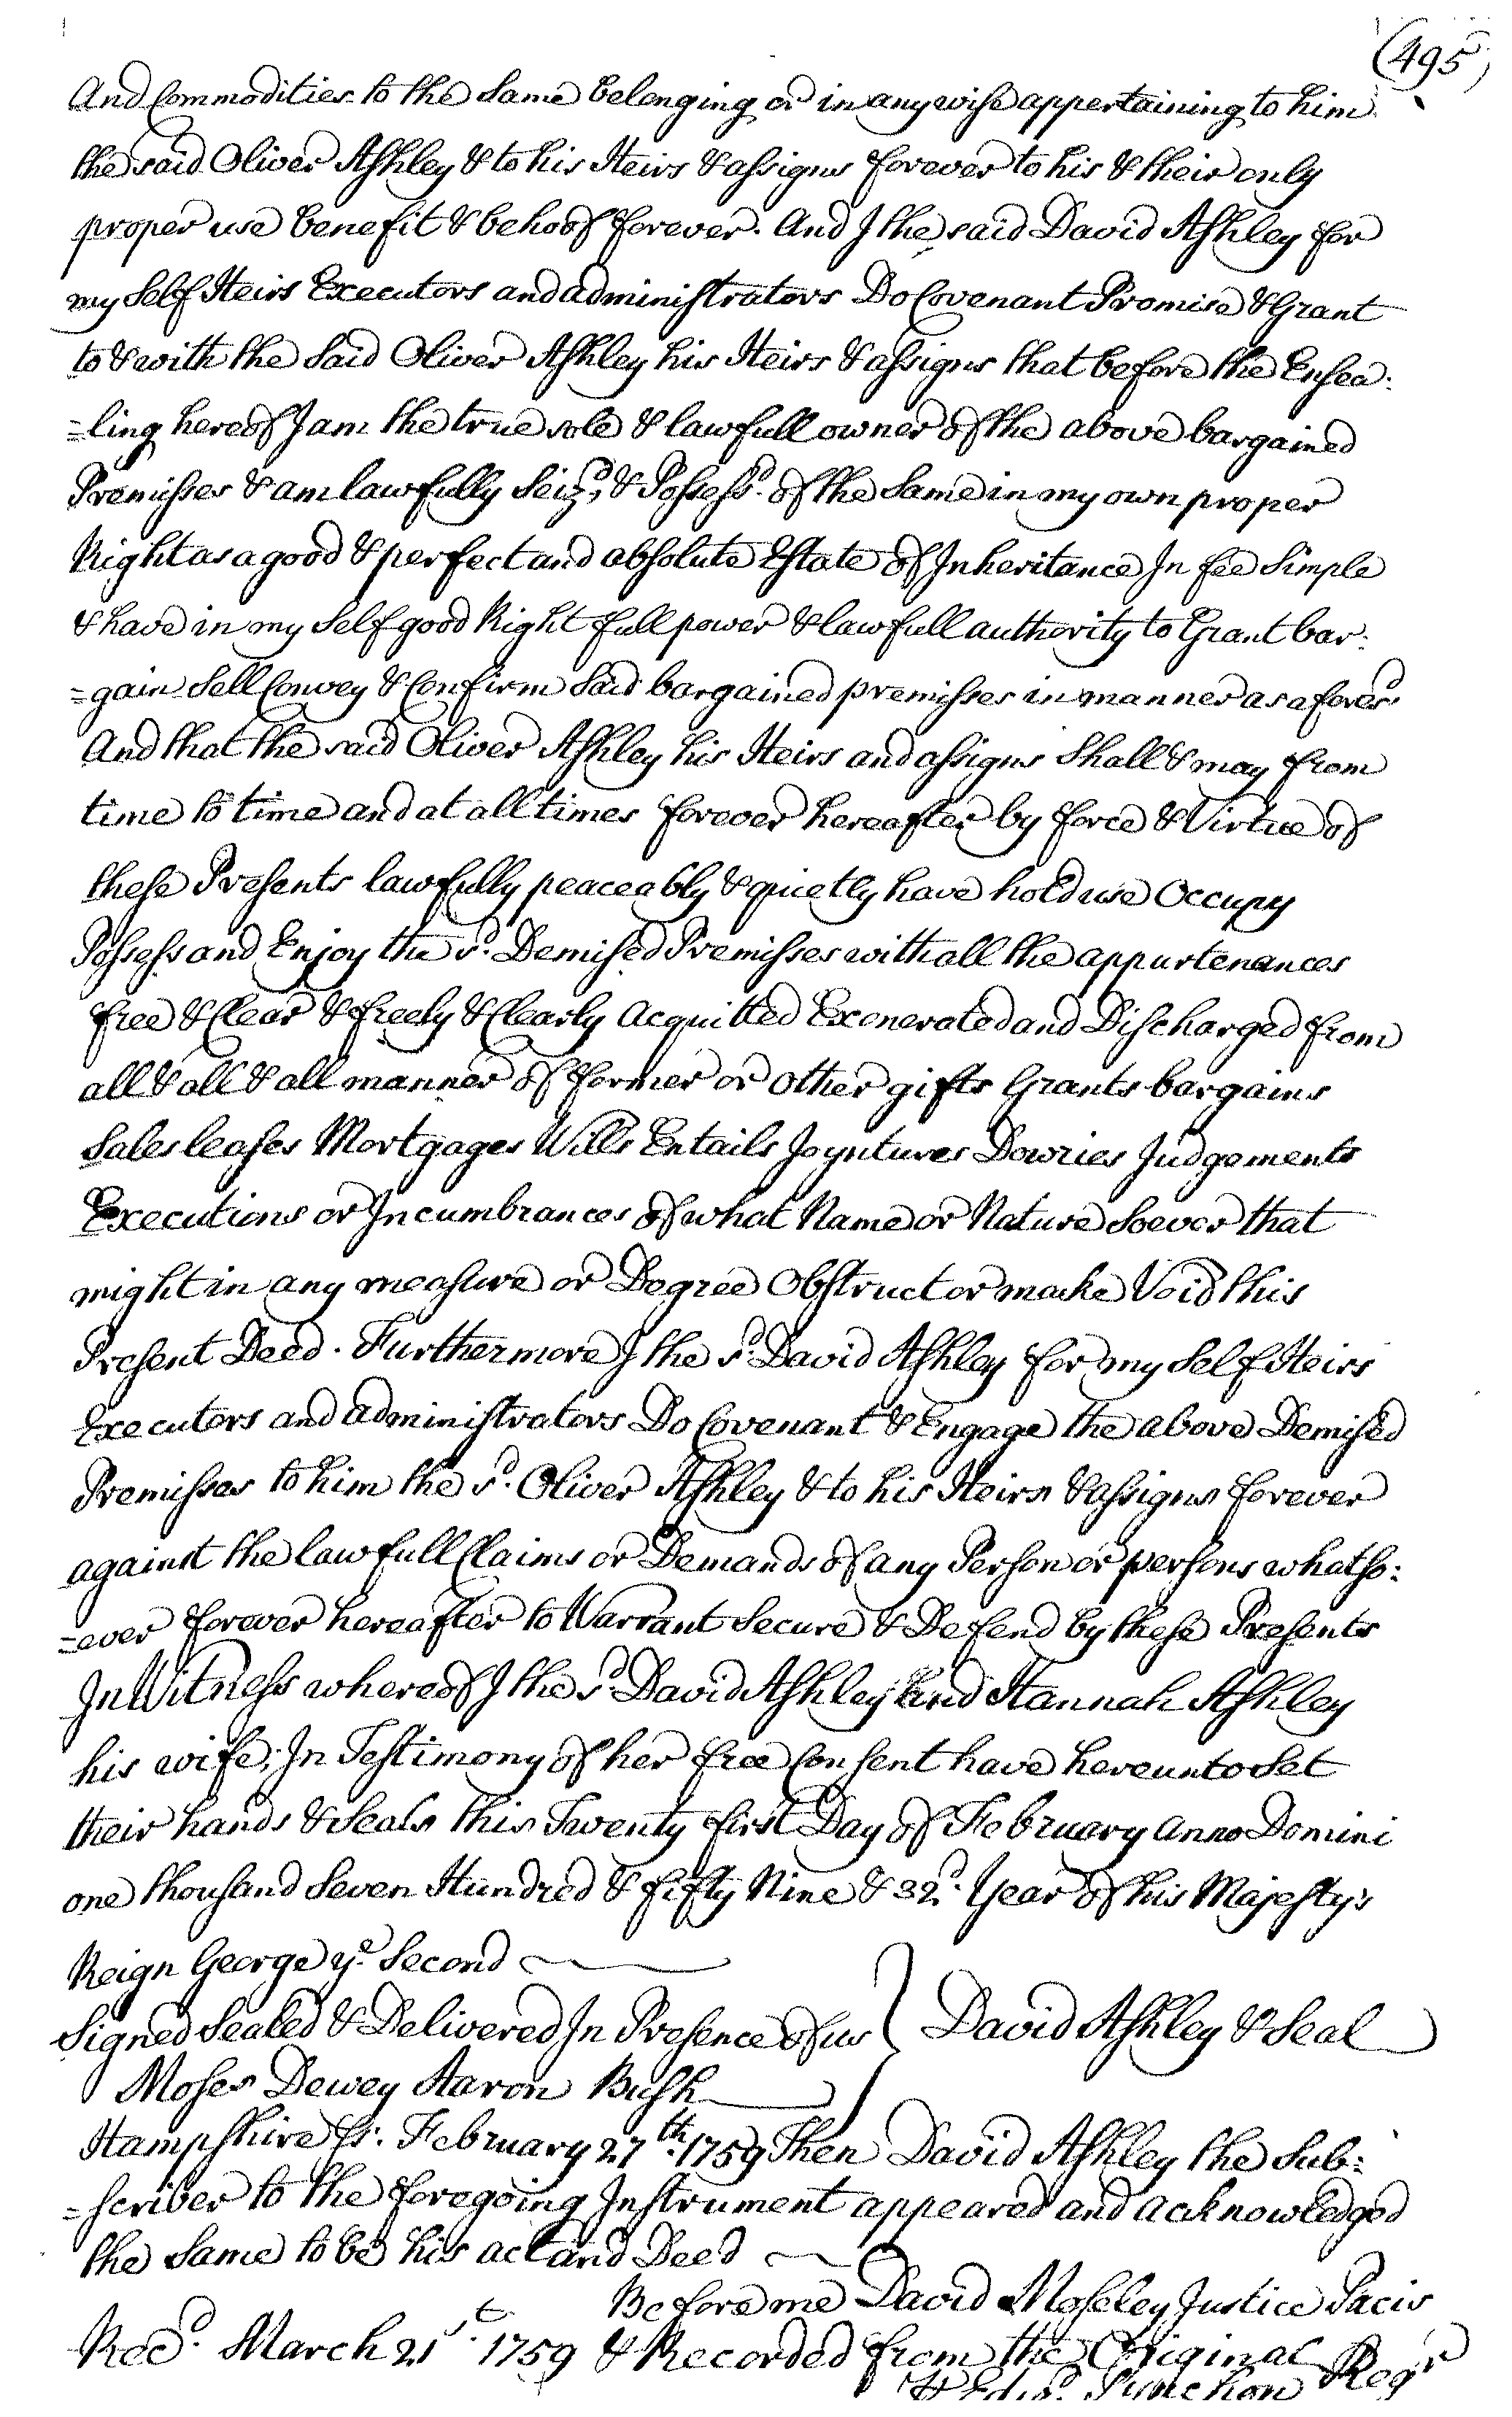 (495)
And Commodities to the Same belonging or in any wise appertaining to him
the said Oliver Ashley & to his Heirs & assigns forever to his & their only
proper use benefit & behoof forever. And I the said David Ashley for
my Self Heirs Executors and administrators Do Covenant Promise & Grant
to & with the Said Oliver Ashley his Heirs & assigns that before the Ensea:
=ling hereof I am the true sole & lawfull owner of the above bargained
Premisses & am lawfully Seizd, & Possessd. of the Same in my own proper
Right as a good & perfect and absolute Estate of Inheritance In fee Simple
& have in my Self good Right full power & lawfull authority to Grant bar:
=gain Sell Convey & Confirm Said bargained premisses in manner as aforesd.
And that the said Oliver Ashley his Heirs and assigns Shall & may from
time to time and at all times forever hereafter by force & Virtue of
these Presents lawfully peaceably & quietly have hold use Occupy
Possess and Enjoy the sd. Demised Premisses with all the appurtenances
free & Clear & freely & Clearly Acquitted Exonerated and Discharged from
all & all & all manner of former or other gifts Grants bargains
Sales leases Mortgages Wills Entails Joyntures Dowries Judgements
Executions or Incumbrances of what Name or Nature Soever that
might in any measure or Degree Obstruct or make Void this
Present Deed. Furthermore I the sd. David Ashley for my Self Heirs
Executors and administrators Do Covenant & Engage the above Demised
Premisses to him the sd. Oliver Ashley & to his Heirs & assigns forever
against the lawfull Claims or Demands of any Person or persons whatso:
=ever forever hereafter to Warrant Secure & Defend by these Presents
In Witness whereof I the sd. David Ashley and Hannah Ashley
his wife, In Testimony of her free Consent have hereunto Set
their hands & Seals this Twenty first Day of February Anno Domini
one thousand Seven Hundred & fifty Nine & 32d. Year of his Majesty's
Reign George ye. Second
Signed Sealed & Delivered In Presence of us } David Ashley & Seal
Moses Dewey Aaron Bush
Hampshire Ss. February 27th. 1759 Then David Ashley the Sub:
=scriber to the foregoing Instrument appeared and acknowledged
the Same to be his act and Deed
Before me David Moseley Justice Pacis
Recd. March 21st. 1759 & Recorded from the Original
Edwd. Pynchon Regr